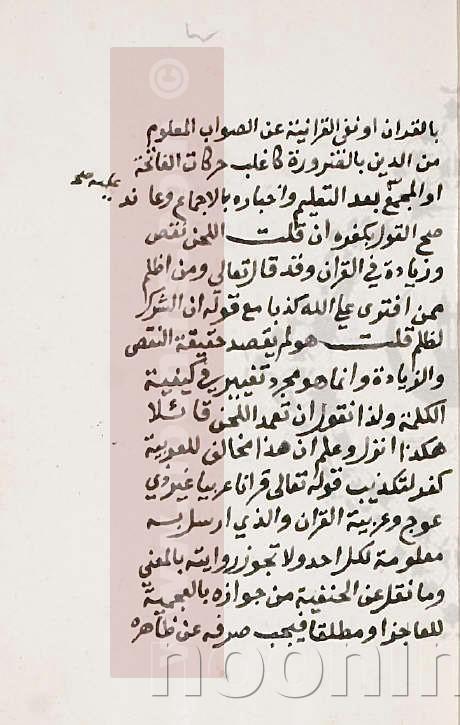 بالقران او نفى القرانية عن الصواب المعلوم
من الدين بالضرورة كاغلب حركات الفاتحة
او المجمع عليه صح بعد التعليم واخباره بالاجماع وعاند
صح القول بكفره ان قلت اللحن نقص
وزيادة في القران وقد قال تعالي ومن اظلم
ممن افترى علي الله كذبا مع قوله ان الشرك
لظلم قلت هو لم يقصد حقيقة النقص
والزيادة وانما هو مجرد تغيير في كيفية
الكلمة ولذا نقول ان تعمد اللحن قائلا
هكذا انزل وعلم ان هذا مخالف للعربية
كفر لتكذيب قوله تعالى قرانا عربيا غير ذي
عوج وعربية القران والذي ارسل به
معلومة لكل احد ولا تجوز روايته بالمعني
وما نقل عن الحنفية من جوازه بالعجمية
للعاجز او مطلقا فيجب صرفه عن ظاهره
noonin